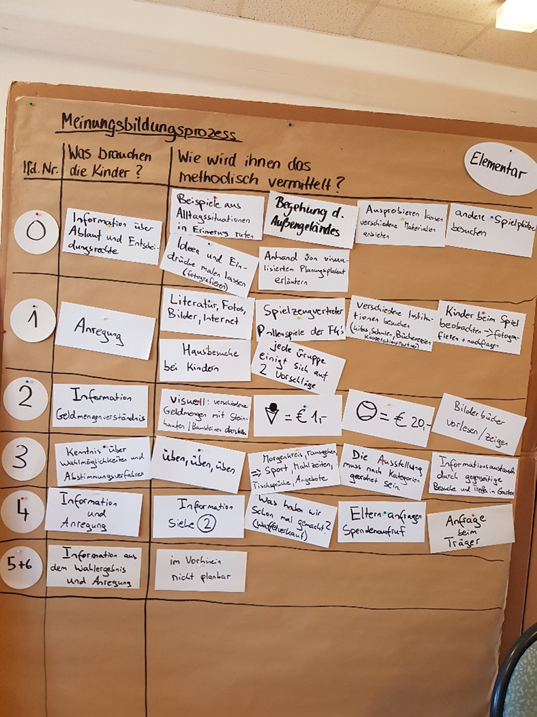 Meinungsbildungsprozess
Elementar
lfd. Nr.
Was brauchen
die Kinder?
Wie wird ihnen das
methodisch vermittelt?
0
Information über
Ablauf und Entschei-
dungsrechte
Beispiele aus
Alltagssituationen
in Erinnerung rufen
Begehung d.
Außengeländes
Ausprobieren lassen
verschiedene Materialien
anbieten
andere Spielplätze
besuchen
Ideen und Ein-
drücke malen lassen
(fotografieren)
Anhand von visua-
lisierten Planungsplakat
erläutern
1
Anregung
Literatur, Fotos,
Bilder, Internet
Spielzeugvertreter
Rollenspiele der FK's
verschiedene Institu-
tionen besuchen
Kinder beim Spiel
beobachten → fotogra-
fieren + nachfragen
Hausbesuche
bei Kindern
jede Gruppe
einigt sich auf
2 Vorschläge
2
Information
Geldmengenverständnis
Visuell: verschiedene
Geldmengen mit Stein-
haufen / Bausteinen darstellen
= € 1,-
= € 20,-
Bilderbücher
vorlesen/zeigen
3
Kenntnis über
Wahlmöglichkeiten und
Abstimmungsverfahren
üben, üben, üben
Morgenkreis,
⇒ Sport, Mahlzeiten,
Tischsprüche, Angebote
Die Ausstellung
muss nach Kategorien
geordnet sein
Informationsaustausch
durch gegenseitige
Besuche und
4
Information
und
Anregung
Information
siehe 2
Was haben wir
schon mal gemacht?
(Waffelverkauf)
Eltern anfragen
Spendenaufruf
Anfrage
beim
Träger
5+6
Information aus
dem Wahlergebnis
und Anregung
im Vorhinein
nicht planbar